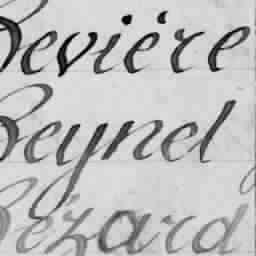 Revière
Reynel
Bézard